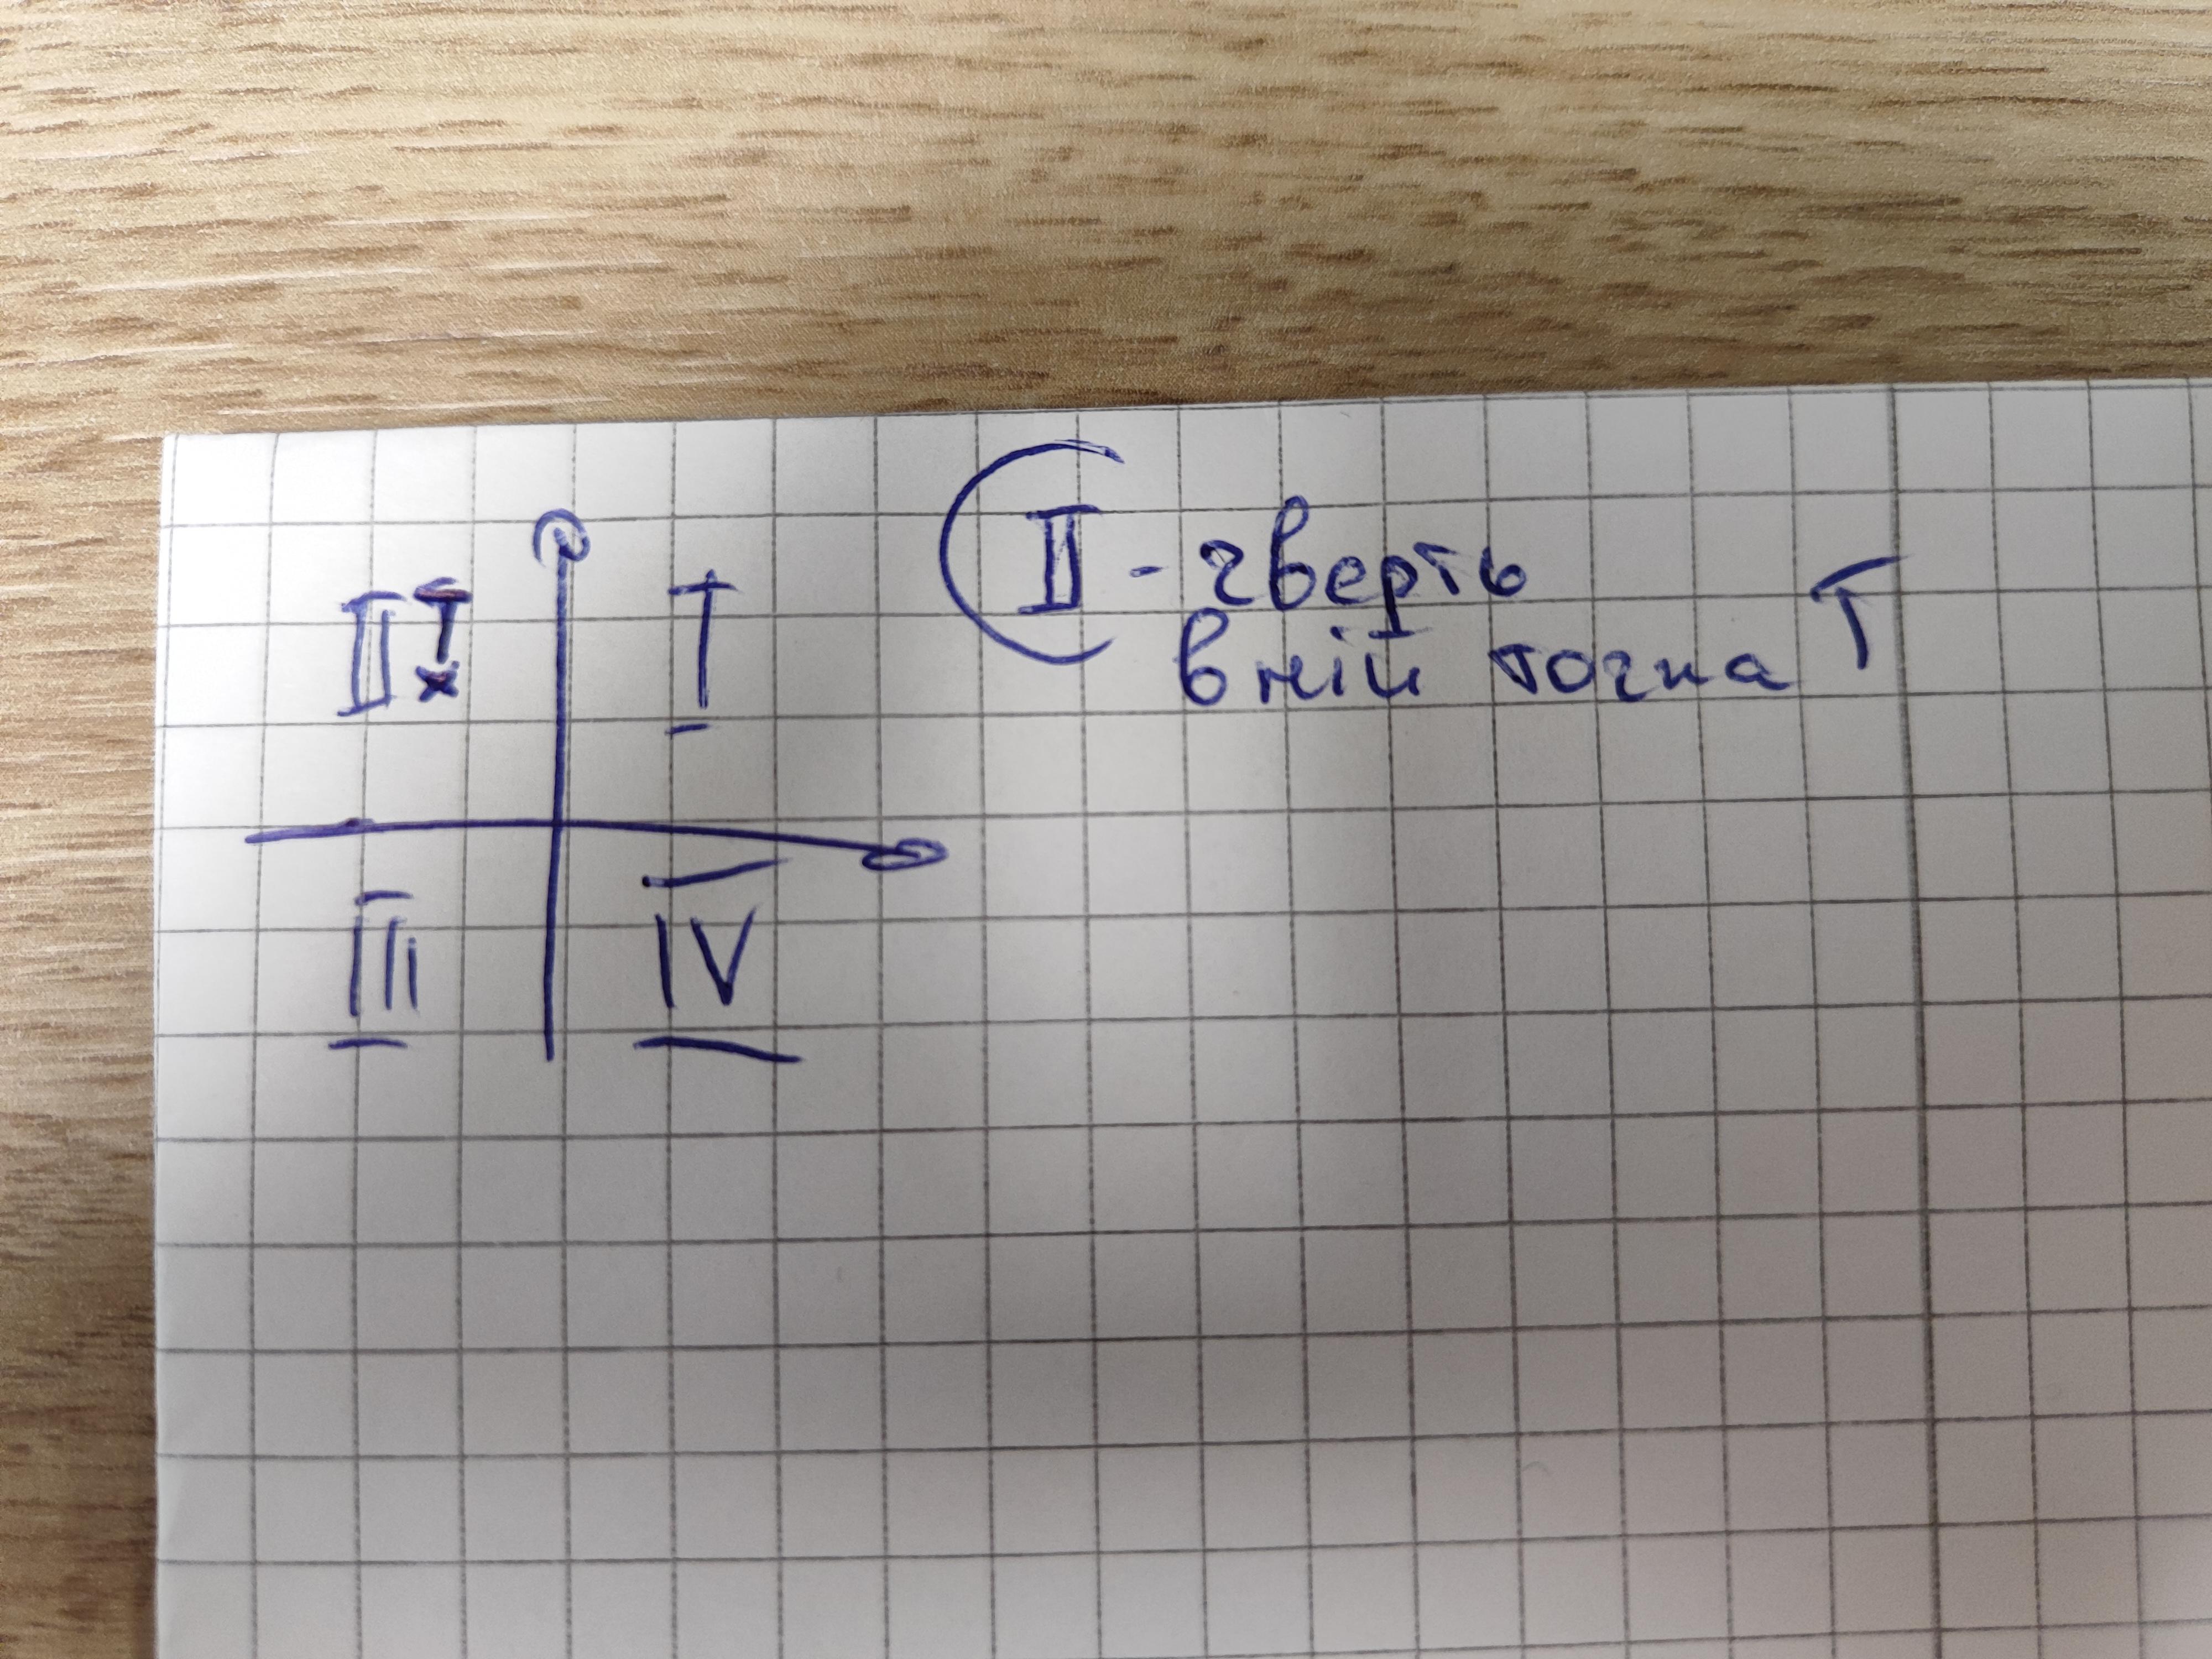 II - чверть
в ній точка T
II T
x
I
III
IV